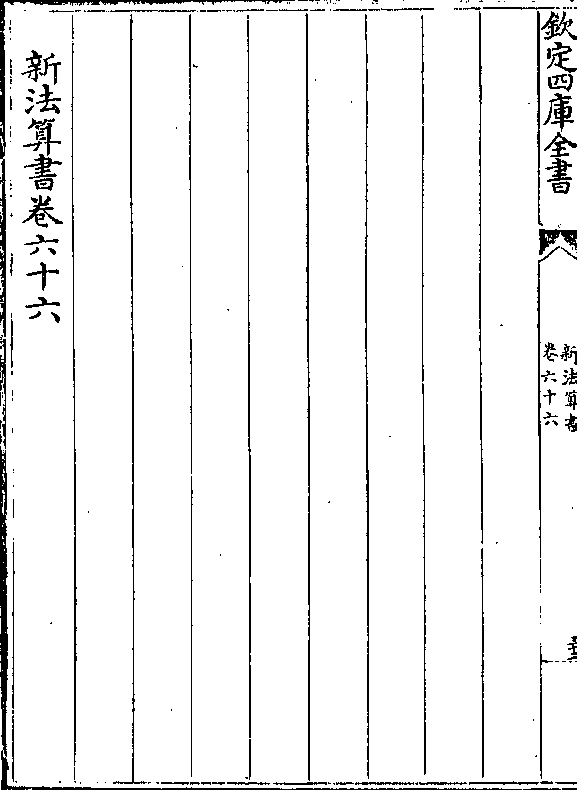 欽定四庫全書
新法算書
卷六十六
新法算書卷六十六